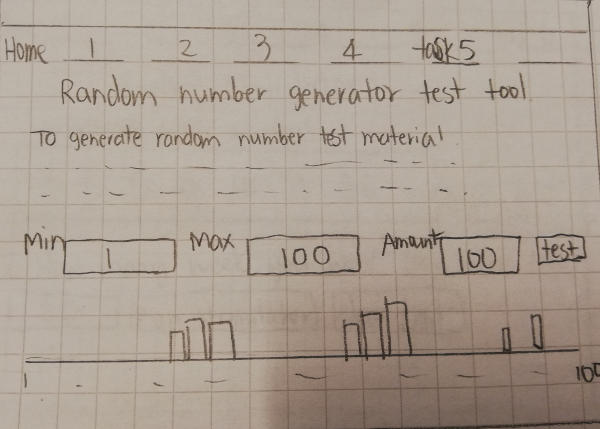 Home 1 2 3 4 task5
Random number generator test tool
To generate random number test material
Min 1 Max 100 Amount 100 test
1 100